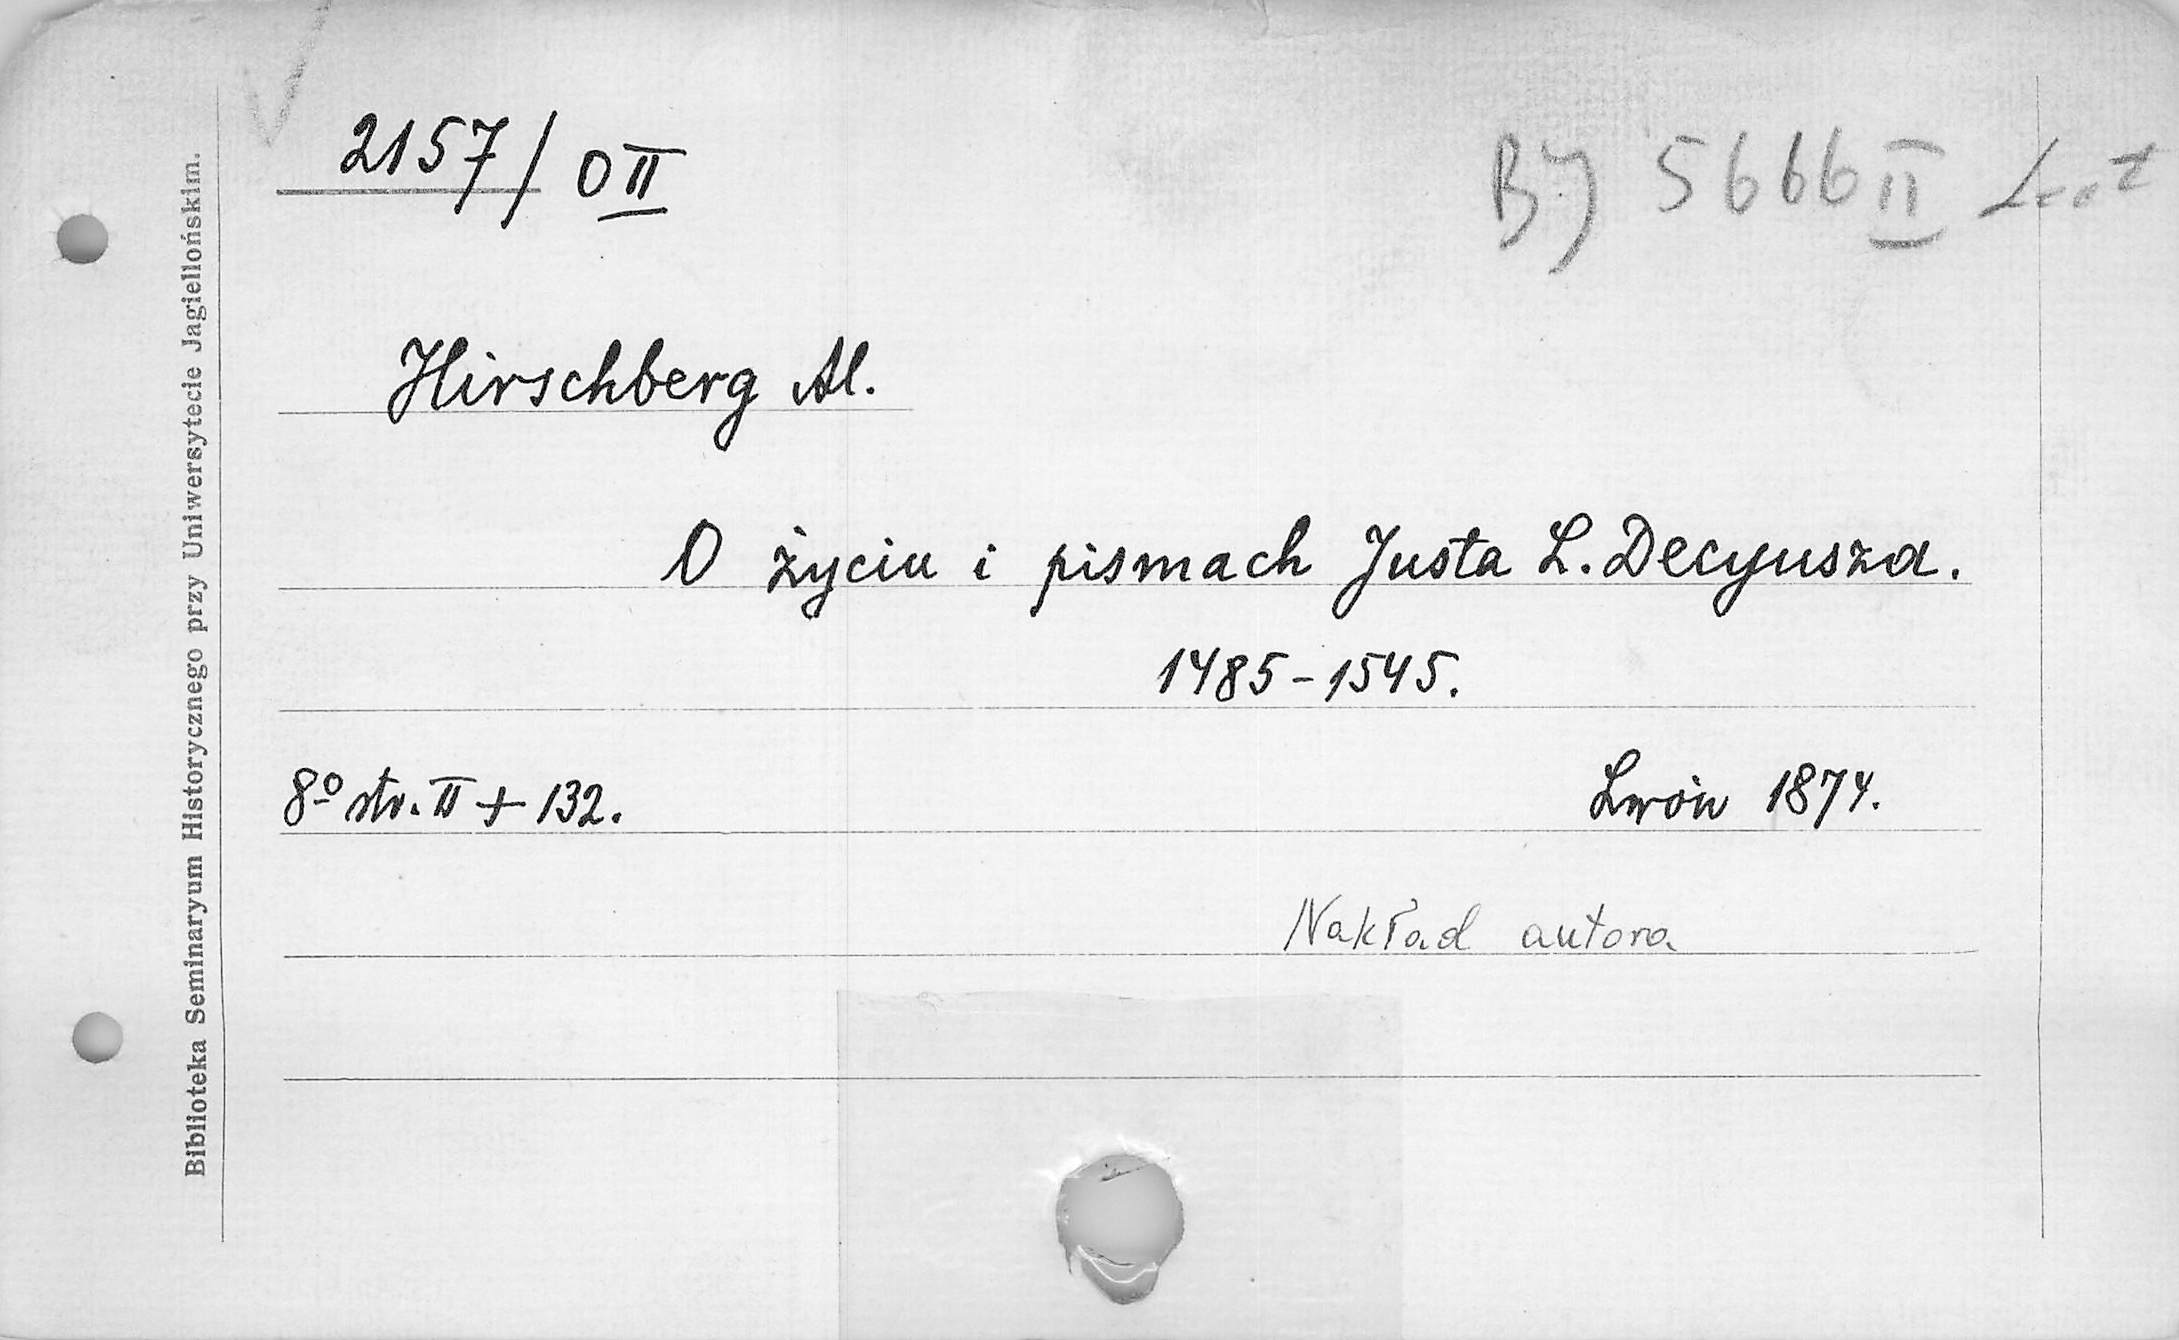 2157/OII
BJ 5666 II
Hirschberg Al.
O życiu i pismach Justa L. Decyusza.
1485-1545.
8º str. II + 132.
Lwów 1874.
Nakład autora
Biblioteka Seminaryum Historycznego przy Uniwersytecie Jagiellońskim.